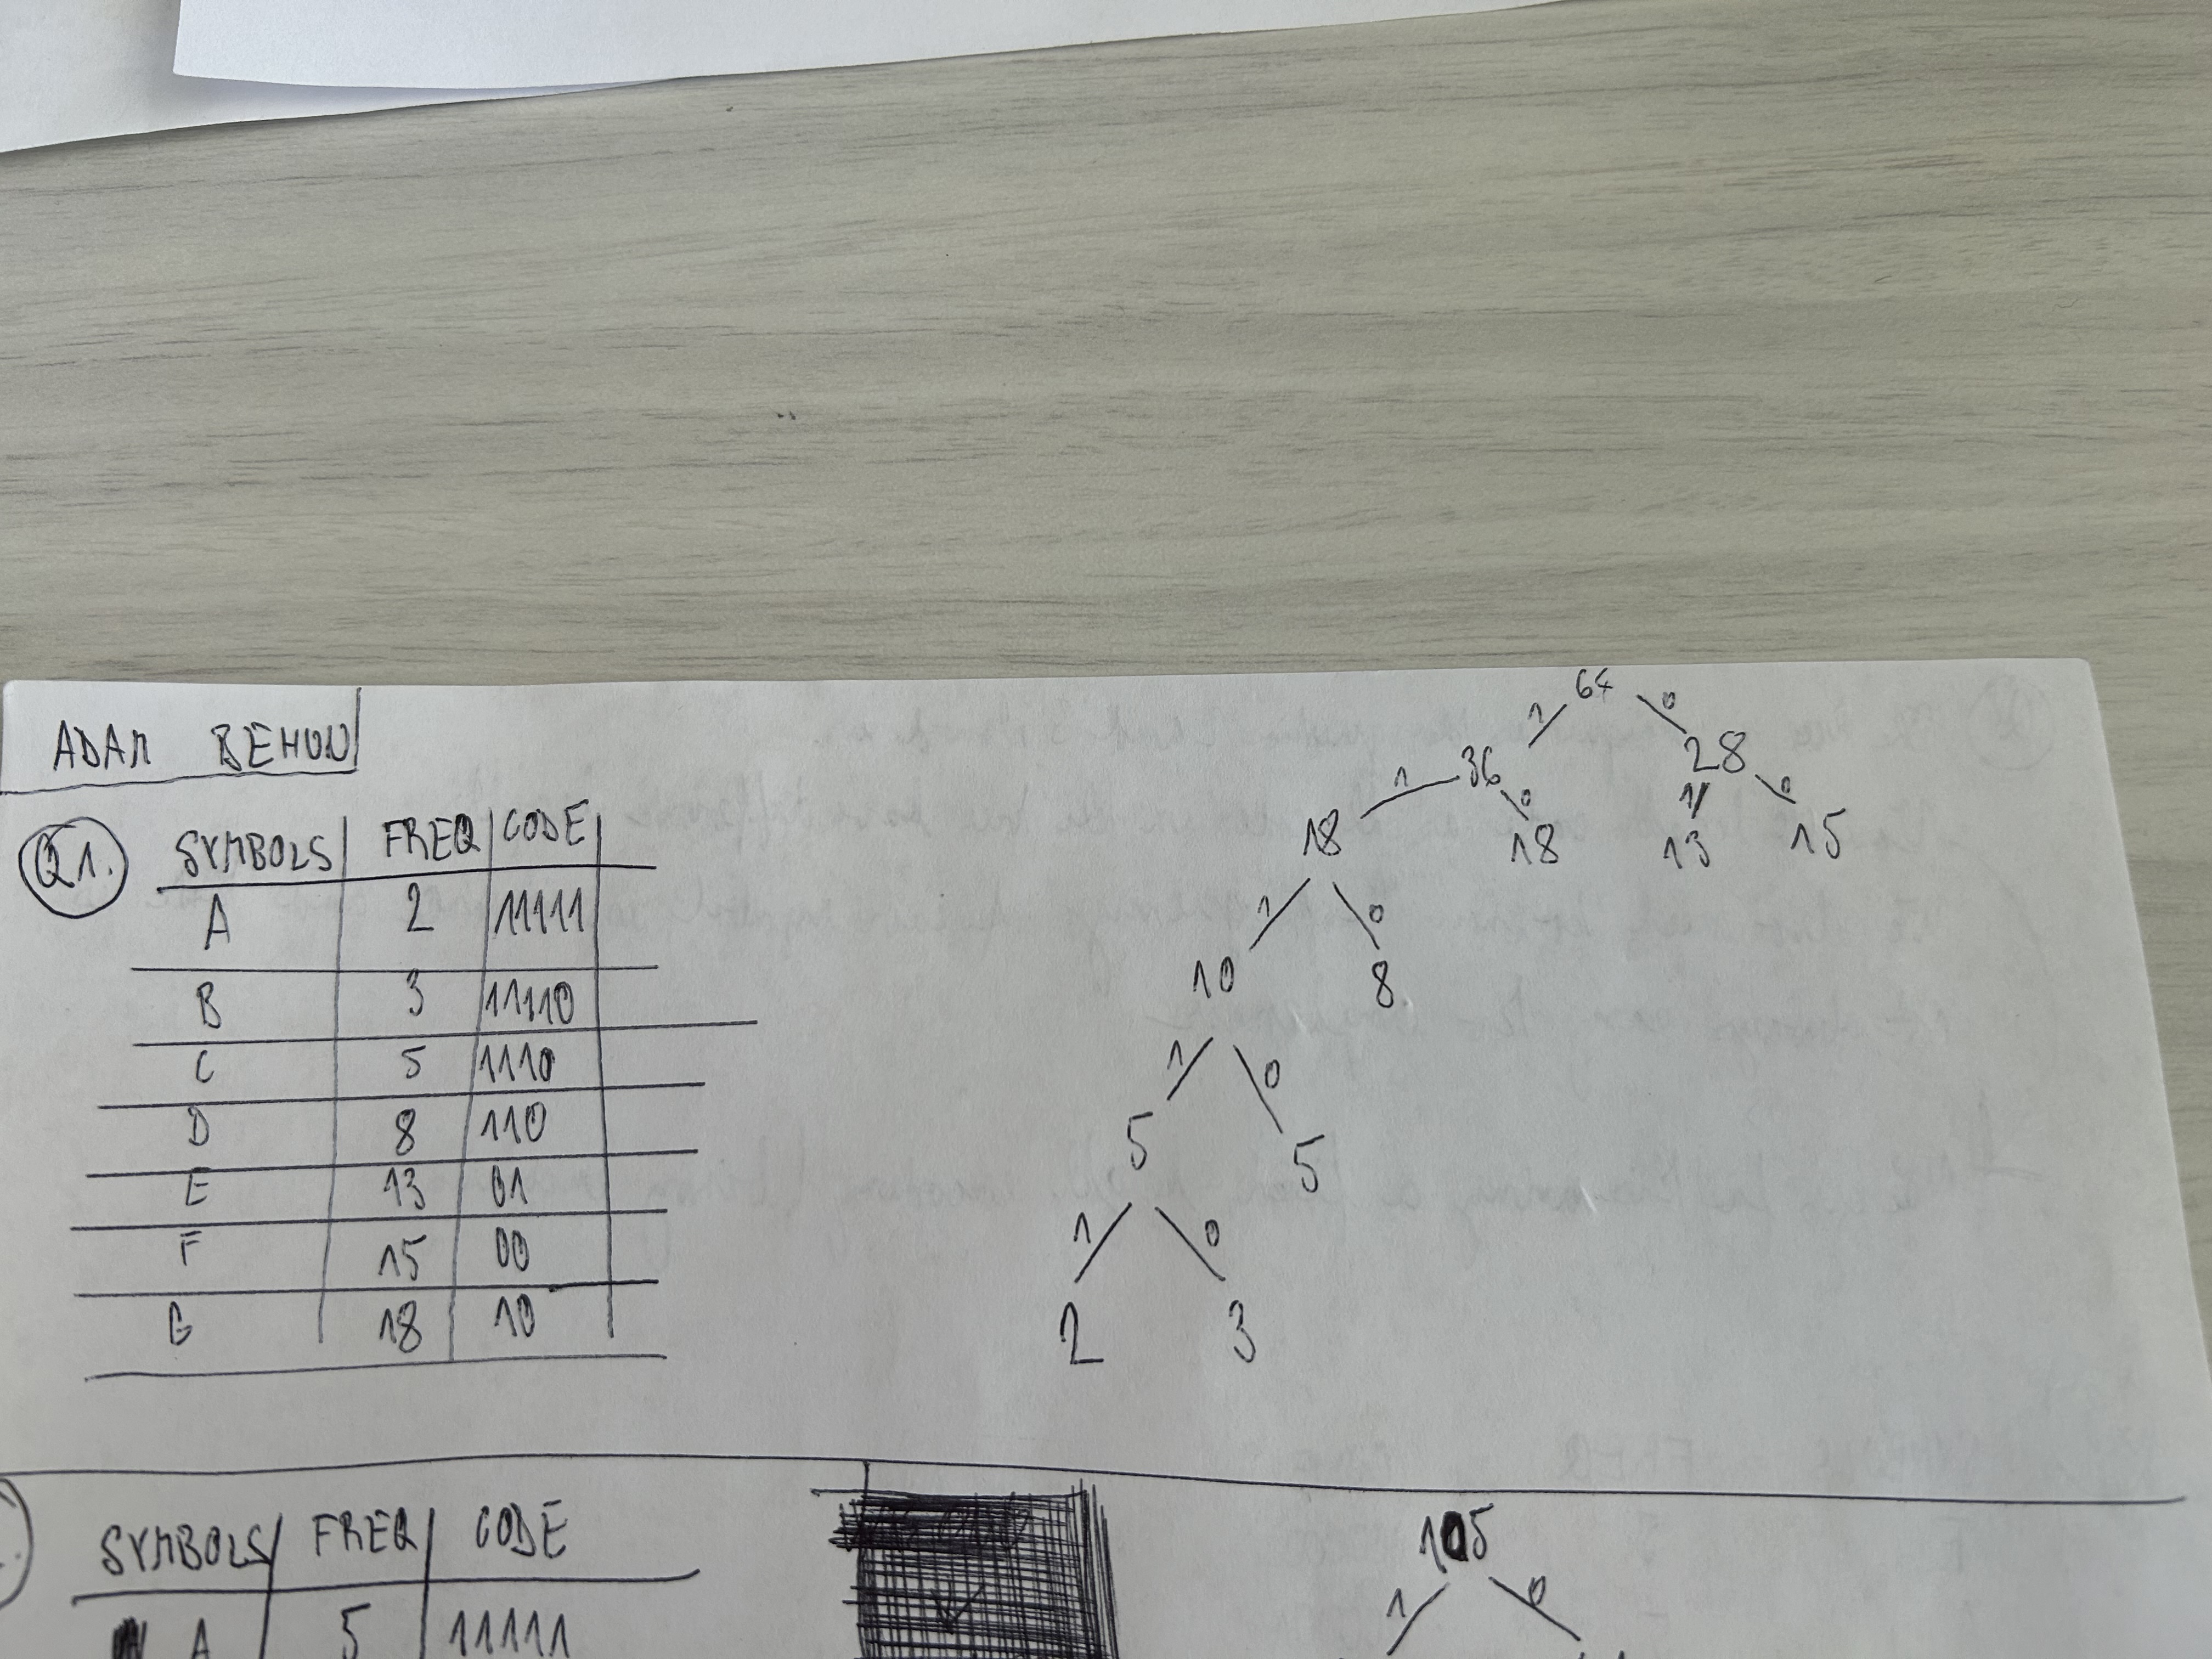 ADAM ŘEHOŇ
Q1.
SYMBOLS FREQ CODE
A 2 11111
B 3 11110
C 5 1110
D 8 110
E 13 01
F 15 00
G 18 10
64
1 0
36 28
1 0 1 0
18 18 13 15
1 0
10 8
1 0
5 5
1 0
2 3
SYMBOLS FREQ CODE
A 5 11111
105
1 0